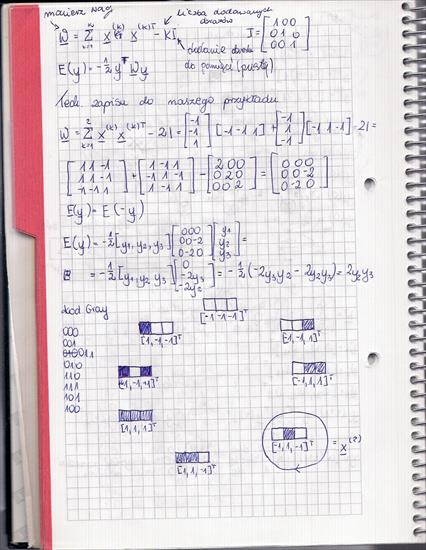 macierz wag
liczba dodawanych
obrazów
W = Σ x^(k) x^(k)T - KI
k=1
I = [1 0 0
0 1 0
0 0 1]
dodanie obrazu
do pamięci (pustej)
E(y) = -1/2 y^T W y
zapisu do naszego przykładu
W = Σ x^(k) x^(k)T - 2I = [-1 -1 1] [-1 -1 1] + [-1 1 -1] [-1 1 -1] - 2I =
[1 1 -1
1 1 -1
-1 -1 1] + [1 -1 1
-1 1 -1
1 -1 1] - [2 0 0
0 2 0
0 0 2] = [0 0 0
0 0 -2
0 -2 0]
E(y) = E(-y)
E(y) = -1/2 [y1, y2, y3] [0 0 0
0 0 -2
0 -2 0] [y1
y2
y3] =
= -1/2 [y1, y2 y3] [0
-2y3
-2y2] = -1/2 (-2y3y2 - 2y2y3) = 2y2y3
kod Gray
[-1 -1 -1]^T
000
001
011
010
110
111
101
100
[1, -1, -1]^T
[-1, -1, 1]^T
[1, -1, 1]^T
[-1, 1, 1]^T
[1, 1, 1]^T
[-1, 1, -1]^T = x^(2)
[1, 1, -1]^T